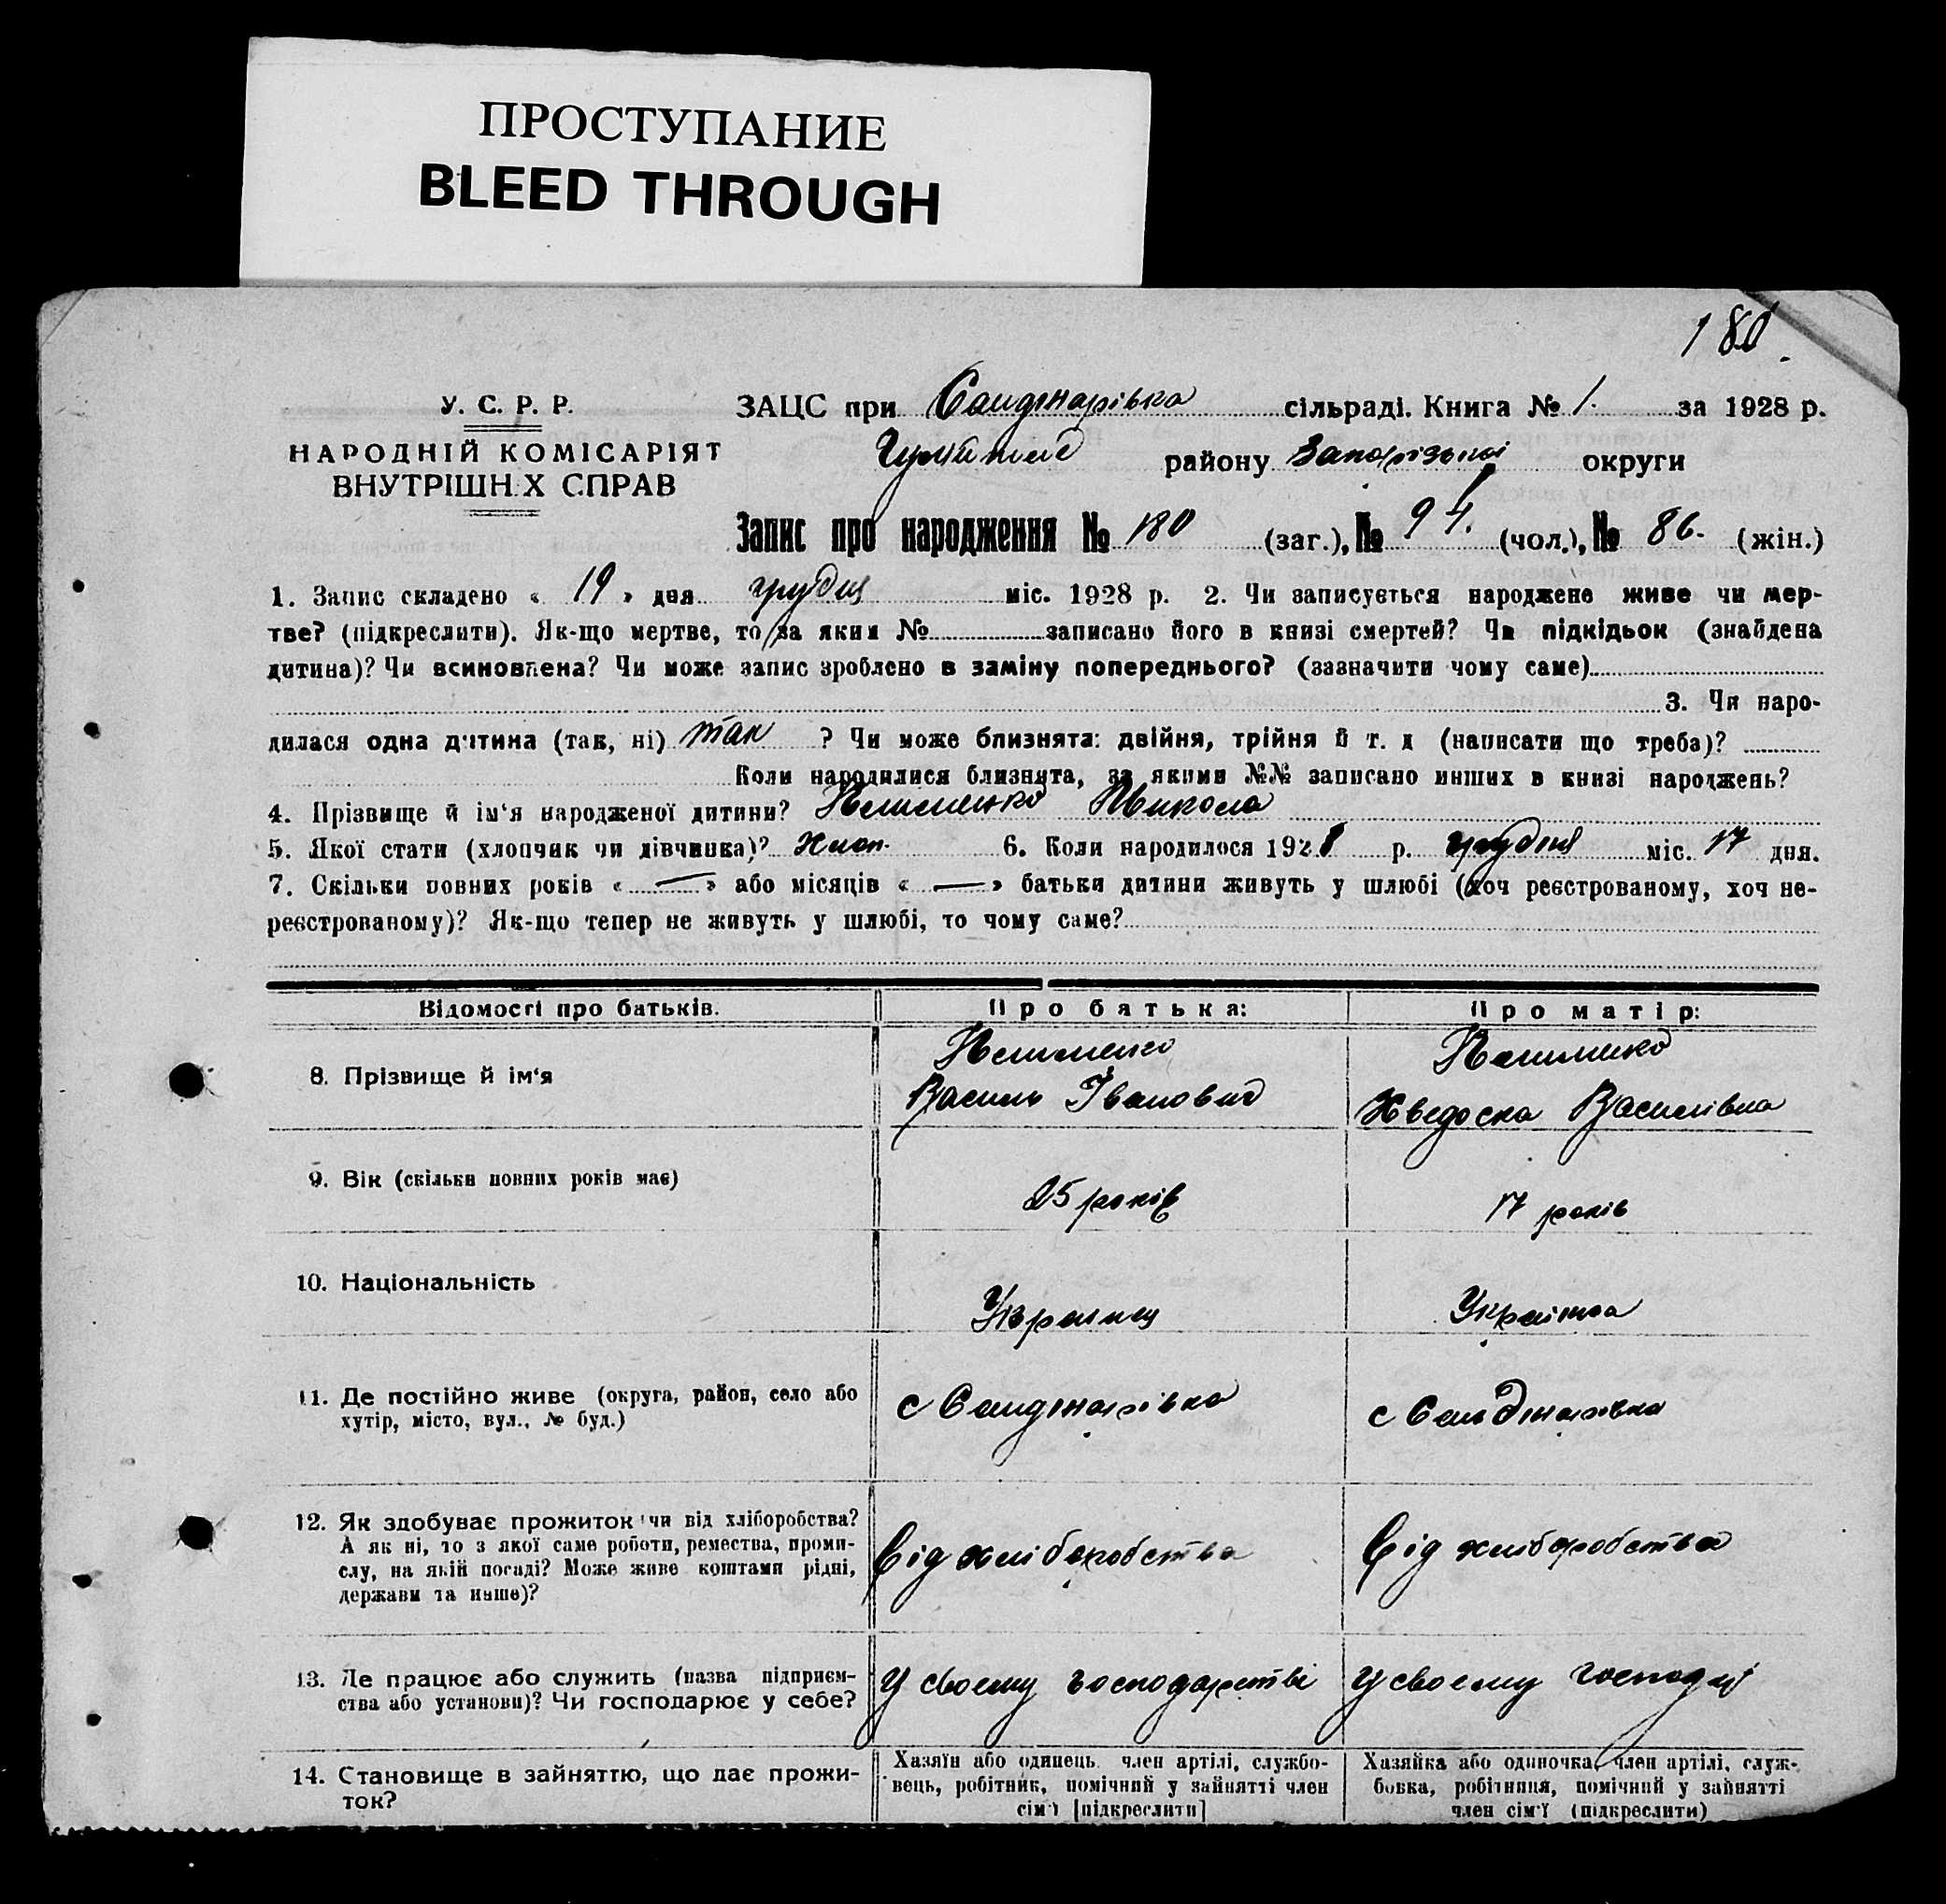 ПРОСТУПАНИЕ
BLEED THROUGH
180.
У. С. Р. Р.
НАРОДНІЙ КОМІСАРІЯТ
ВНУТРІШНІХ СПРАВ
ЗАЦС при Санджарівка сільраді. Книга № 1. за 1928 р.
району Запорізької округи
Запис про народження № 180 (заг.), № 94. (чол.), № 86. (жін.)
1. Запис складено « 19 » дня грудня міс. 1928 р. 2. Чи записується народжене живе чи мер-
тве? (підкреслити). Як-що мертве, то за яким № записано його в книзі смертей? Чи підкідьок (знайдена
дитина)? Чи всиновлена? Чи може запис зроблено в заміну попереднього? (зазначити чому саме)
3. Чи наро-
дилася одна дитина (так, ні) так ? Чи може близнята: двійня, трійня й т. д (написати що треба)?
Коли народилися близнята, за якими №№ записано инших в книзі народжень?
4. Прізвище й ім'я народженої дитини? Микола
5. Якої стати (хлопчик чи дівчинка)? Хлоп. 6. Коли народилося 1928 р. грудня міс. 17 дня.
7. Скільки повних років « — » або місяців « — » батьки дитини живуть у шлюбі (хоч реєстрованому, хоч не-
реєстрованому)? Як-що тепер не живуть у шлюбі, то чому саме?
Відомості про батьків.
Про батька:
Про матір:
8. Прізвище й ім'я
Василь Іванович
Хведоска Василівна
9. Вік (скільки повних років має)
25 років
17 років
10. Національність
Українец
Українка
11. Де постійно живе (округа, район, село або
хутір, місто, вул., № буд.)
с Санджарівка
с Санджарівка
12. Як здобуває прожиток чи від хліборобства?
А як ні, то з якої саме роботи, ремества, проми-
слу, на якій посаді? Може живе коштами рідні,
держави та инше)?
Від хліборобства
Від хліборобства
13. Де працює або служить (назва підприєм-
ства або установи)? Чи господарює у себе?
У своєму господарстві
У своєму
14. Становище в зайняттю, що дає прожи-
ток?
Хазяїн або одинець, член артілі, службо-
вець, робітник, помічний у зайнятті член
сім'ї [підкреслити]
Хазяйка або одиночка, член артілі, служ-
бовка, робітниця, помічний у зайнятті
член сім'ї (підкреслити)